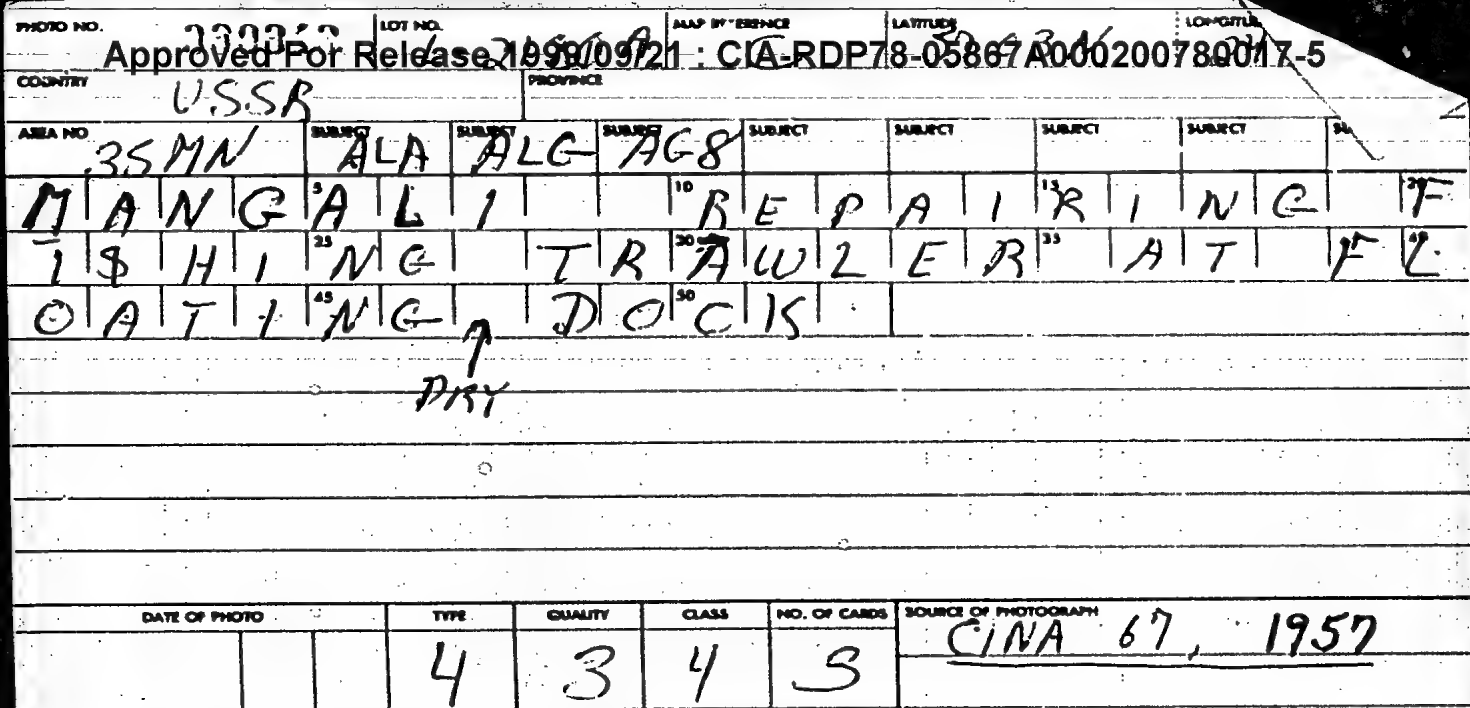 PHOTO NO. LOT NO. LATITUDE
Approved For Release 1999/09/21 : CIA-RDP78-05867A000200780017-5
COUNTRY U.S.S.R PROVINCE
AREA NO. 35MN SUBJECT ALA SUBJECT ALG SUBJECT AG8 SUBJECT SUBJECT SUBJECT SUBJECT
MANGALI REPAIRING F
ISHING TRAWLER AT FL
OATING DOCK
DRY
DATE OF PHOTO TYPE QUALITY CLASS NO. OF CARDS SOURCE OF PHOTOGRAPH
4 3 4 S CINA 67, 1957